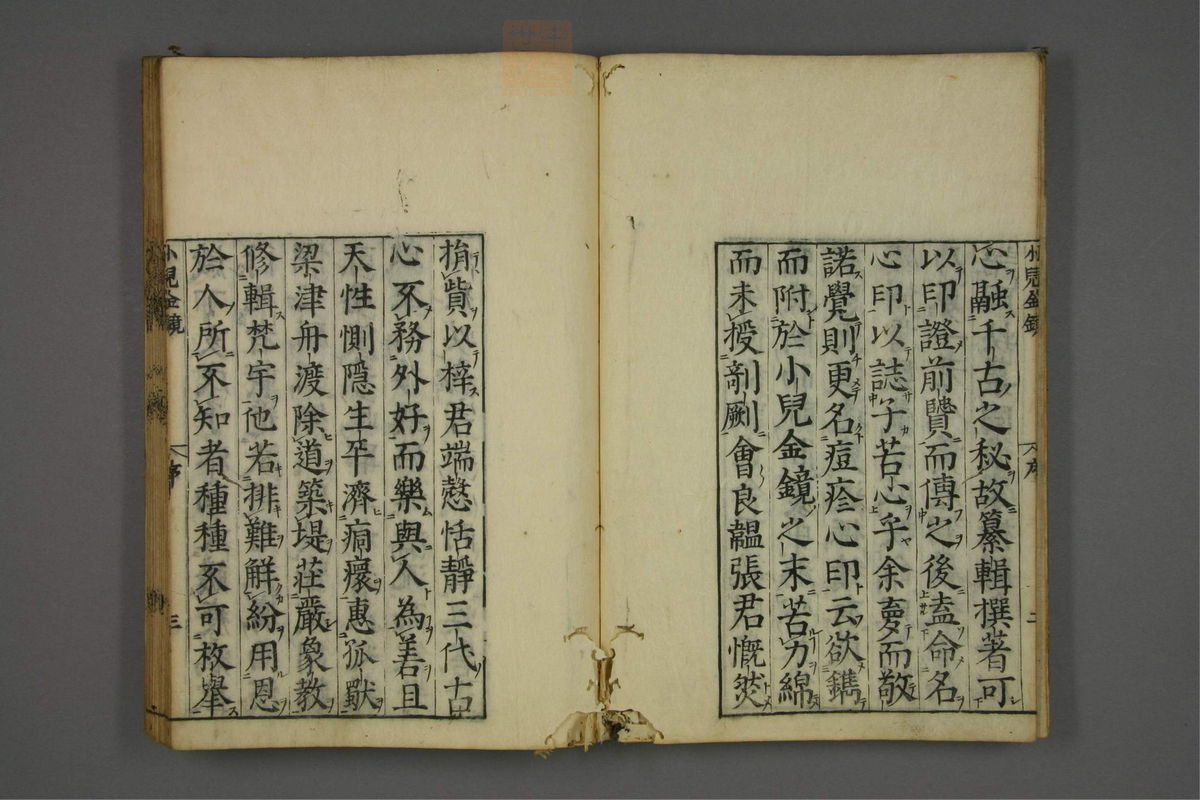 小兒金鏡
序
二
心融千古之秘故纂輯撰著可
以印證前賢而傳之後盍命名
心印以誌子苦心乎余夢而敬
諾覺則更名痘疹心印云欲鐫
而附於小兒金鏡之末苦力綿
而未授剞劂會良韞張君慨然
捐貲以梓君端慤恬靜三代古
心不務外好而樂與人為善且
天性惻隱生平濟痌瘝惠孤獸
梁津舟渡除道築堤莊嚴象教
修輯梵宇他若排難解紛用恩
於人所不知者種種不可枚舉
小兒金鏡
序
三